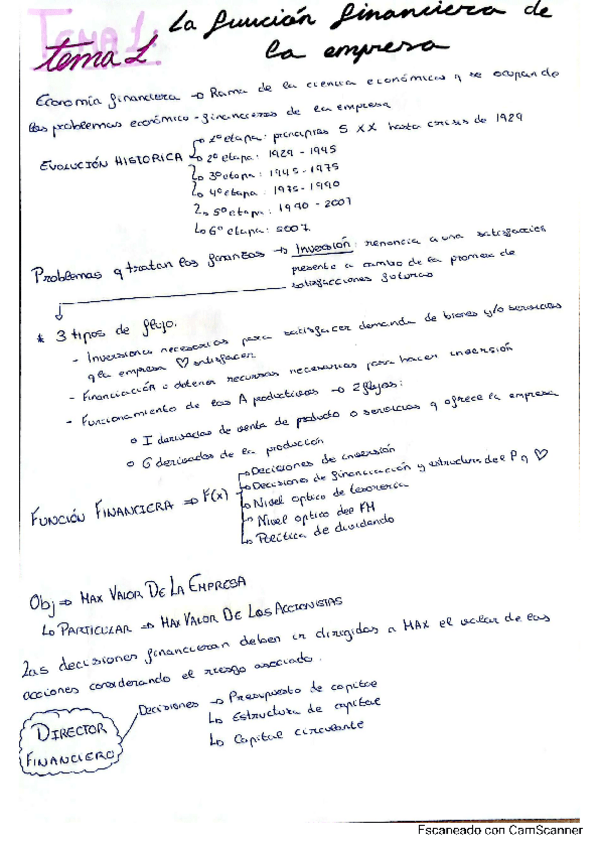 TEMA 1:
tema 1 La función financiera de
la empresa
Economía financiera → Rama de la ciencia económica q se ocupan de
los problemas económico-financieros de la empresa
EVOLUCIÓN HISTORICA
1º etapa: principios S XX hasta crisis de 1929
2º etapa: 1929 - 1945
3º etapa: 1945 - 1975
4º etapa: 1975 - 1990
5º etapa: 1990 - 2007
6º etapa: 2007
Problemas q tratan las finanzas → Inversión: renoncia a una satisfacción
presente a cambio de la promesa de
satisfacciones futuras
* 3 tipos de flujo.
- Inversiones necesarias para satisfacer demanda de bienes y/o servicios
q la empresa ♡ satisfacer
- Financiación u obtener recursos necesarios para hacer inversión
- Funcionamiento de los A productivos → 2 flujos:
o I derivados de venta de producto o servicios q ofrece la empresa
o G derivados de la producción
FUNCIÓN FINANCIERA ⇒ F(x)
Decisiones de inversión
Decisiones de financiación y estructura del P q ♡
Nivel optico de tesorería
Nivel optico del FM
Política de dividendo
Obj ⇒ MAX VALOR DE LA EMPRESA
PARTICULAR ⇒ MAX VALOR DE LOS ACCIONISTAS
Las decisiones financieran deben ir dirigidas a MAX el valor de las
acciones considerando el riesgo asociado.
DIRECTOR
FINANCIERO
Decisiones → Presupuesto de capital
Estructura de capital
Capital circulante
Escaneado con CamScanner